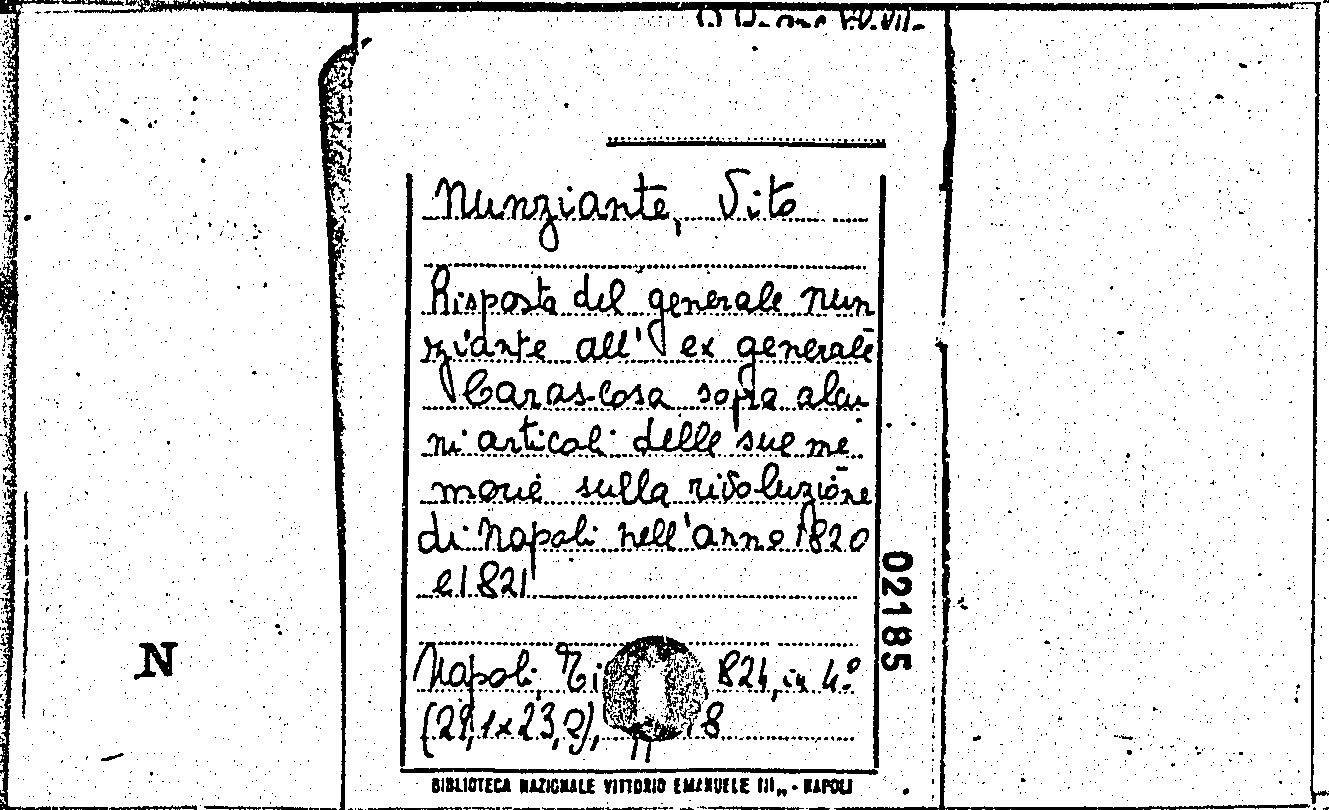 Nunziante, Vito
Risposta del generale Nun
ziante all' ex generale
Carascosa sopra alcu
ni articoli delle sue me
morie sulla rivoluzione
di Napoli nell'anno 1820
e 1821
Napoli, 824, in 4.º
8
02185
N
BIBLIOTECA NAZIONALE VITTORIO EMANUELE III,, - NAPOLI